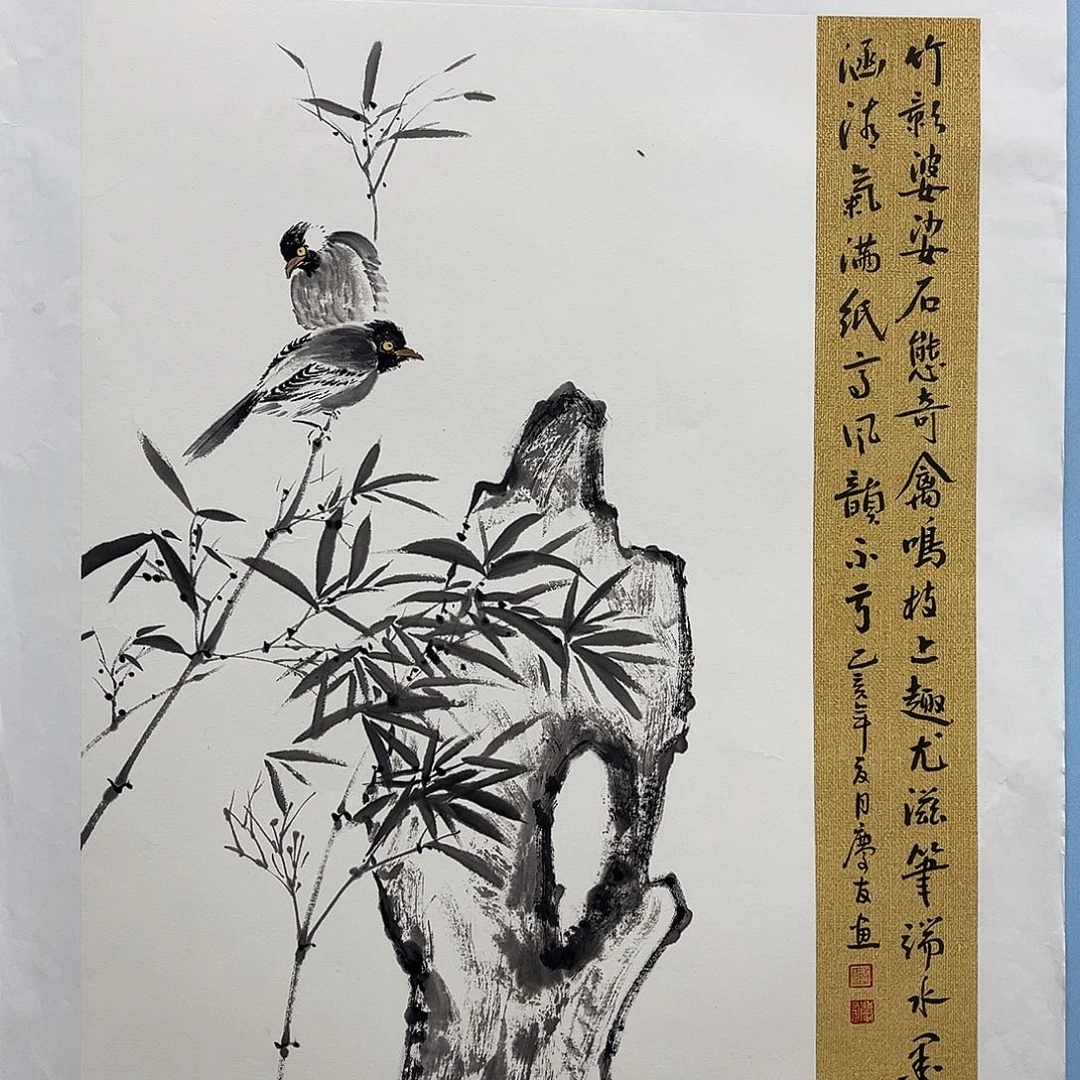 竹影婆娑石態奇禽鳴枝上趣尤滋筆端水墨
涵清氣滿紙高風韻不亏乙亥年夏月慶友畫